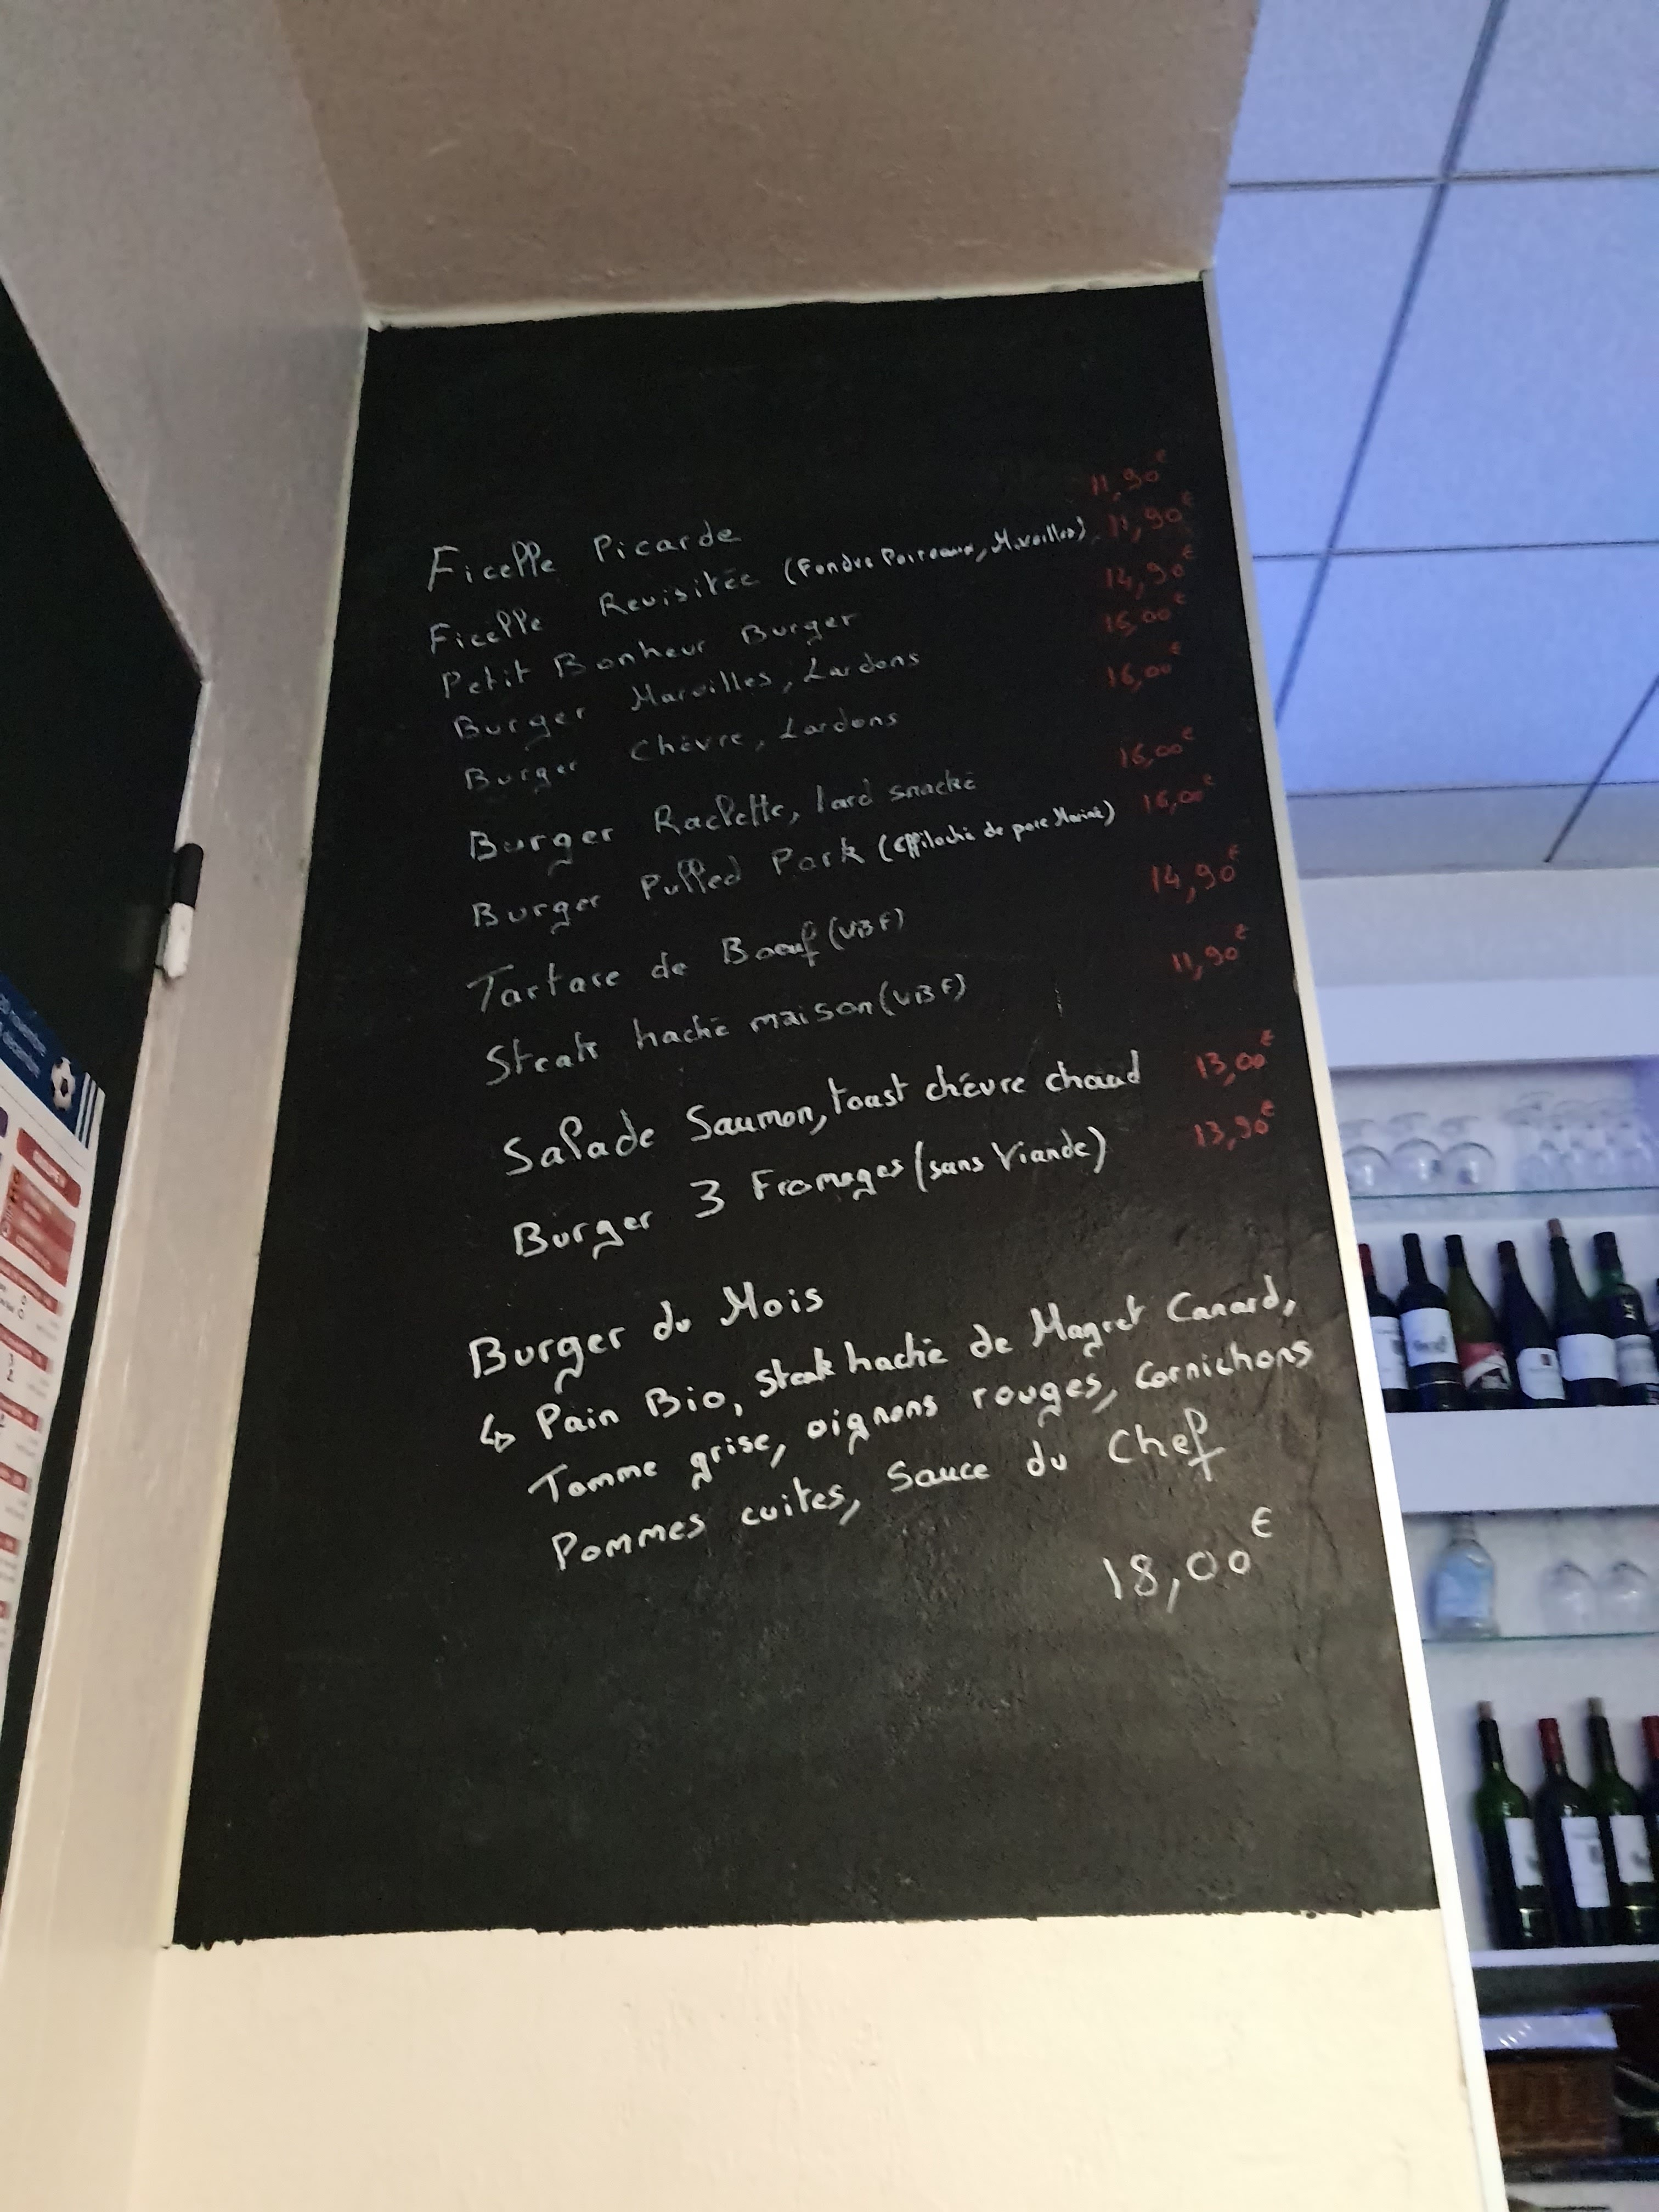 Ficelle Picarde 11,90€
Ficelle Revisitée (Fondue Poireaux, Maroilles) 11,90€
Petit Bonheur Burger 14,90€
Burger Maroilles, Lardons 16,00€
Burger Chèvre, Lardons 16,00€
Burger Raclette, lard snacké 16,00€
Burger Pulled Pork (effiloché de porc Mariné) 16,00€
Tartare de Boeuf (VBF) 14,90€
Steak haché maison (VBF) 11,90€
Salade Saumon, toast chèvre chaud 13,00€
Burger 3 Fromages (sans Viande) 13,90€
Burger du Mois
↳ Pain Bio, Steak haché de Magret Canard,
Tomme grise, oignons rouges, cornichons
Pommes cuites, Sauce du Chef
18,00€